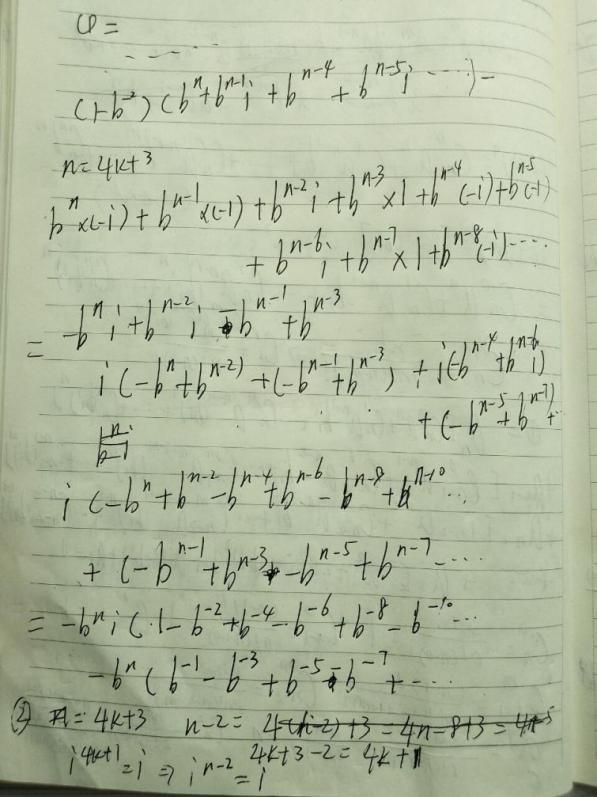 φ =
(1-b⁻²)(bⁿ+bⁿ⁻¹i + bⁿ⁻⁴ + bⁿ⁻⁵i ⋯⋯) -
n=4k+3
bⁿ×(-i) + bⁿ⁻¹×(-1) + bⁿ⁻²i + bⁿ⁻³×1 + bⁿ⁻⁴(-i) + bⁿ⁻⁵(-1)
+ bⁿ⁻⁶i + bⁿ⁻⁷×1 + bⁿ⁻⁸(-i) ⋯⋯
= -bⁿi + bⁿ⁻²i - bⁿ⁻¹ + bⁿ⁻³
i(-bⁿ+bⁿ⁻²) + (-bⁿ⁻¹+bⁿ⁻³) + i(-bⁿ⁻⁴+bⁿ⁻⁶i)
+ (-bⁿ⁻⁵+bⁿ⁻⁷) +
i(-bⁿ+bⁿ⁻²-bⁿ⁻⁴+bⁿ⁻⁶-bⁿ⁻⁸+bⁿ⁻¹⁰⋯
+ (-bⁿ⁻¹+bⁿ⁻³-bⁿ⁻⁵+bⁿ⁻⁷-⋯⋯
= -bⁿi(1-b⁻²+b⁻⁴-b⁻⁶+b⁻⁸-b⁻¹⁰⋯
-bⁿ(b⁻¹-b⁻³+b⁻⁵-b⁻⁷+⋯⋯
② n=4k+3 n-2= 4(n-2)+3=4n-8+3=4n-5
i⁴ᵏ⁺¹=i ⇒ iⁿ⁻²=i 4k+3-2=4k+1